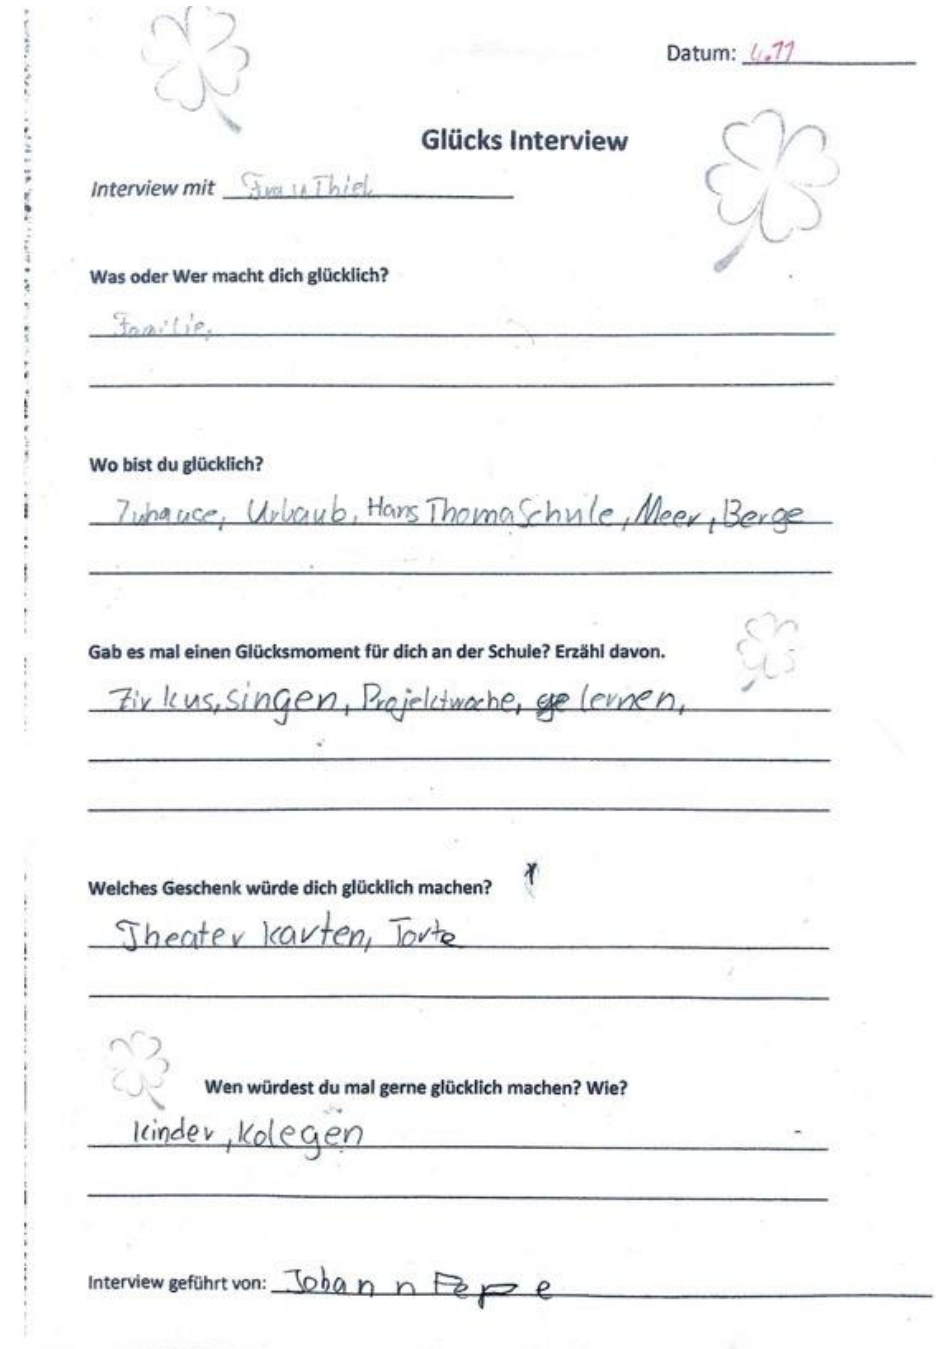 Datum: 4.11
Glücks Interview
Interview mit Frau Thiel
Was oder Wer macht dich glücklich?
Familie,
Wo bist du glücklich?
Zuhause, Urbaub, Hans Thoma Schule, Meer, Berge
Gab es mal einen Glücksmoment für dich an der Schule? Erzähl davon.
Zirkus, singen, Projektwoche, lernen,
Welches Geschenk würde dich glücklich machen?
Theater karten, Torte
Wen würdest du mal gerne glücklich machen? Wie?
kinder, Kolegen
Interview geführt von: Johann Pepe